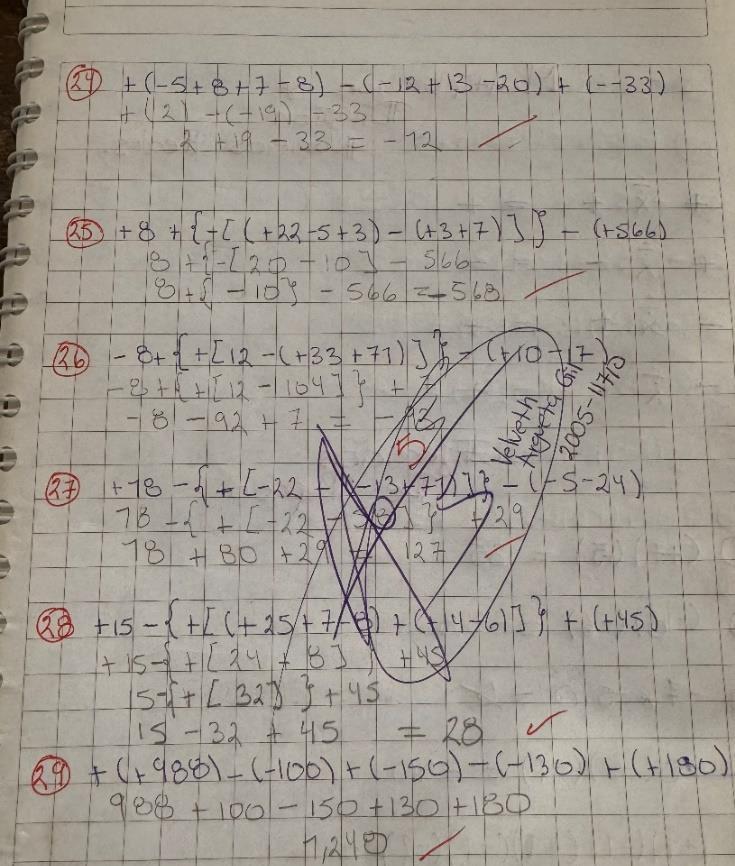 24 +(-5+8+7-8) - (-12+13-20) + (--33)
+(2) -(-19) -33
2 +19 -33 = -12
25 +8 +{+[(+22-5+3) - (+3+7)]} - (+566)
8 +{-[20 -10] - 566
8+{ -10} - 566 = -568
26 -8+{+[12-(+33+71)]} - (+10-17)
-8+{+[12-104]} + 7
-8 -92 + 7 = -93
5
Velveth
Argueta Gil
2005-11710
27 +78 -{+[-22 - 13+71)]} - (-5-24)
78 -{+[-22 - 58]} +29
78 + 80 +29 = 127
28 +15-{+[(+25+7-8) + (+14-6)]} + (+45)
+15-{+[24 + 8]} +45
15-{+[32]} +45
15 -32 + 45 = 28
29 +(+988) - (-100) + (-150) - (-130) + (+180)
988 +100 -150 +130 +180
1,248